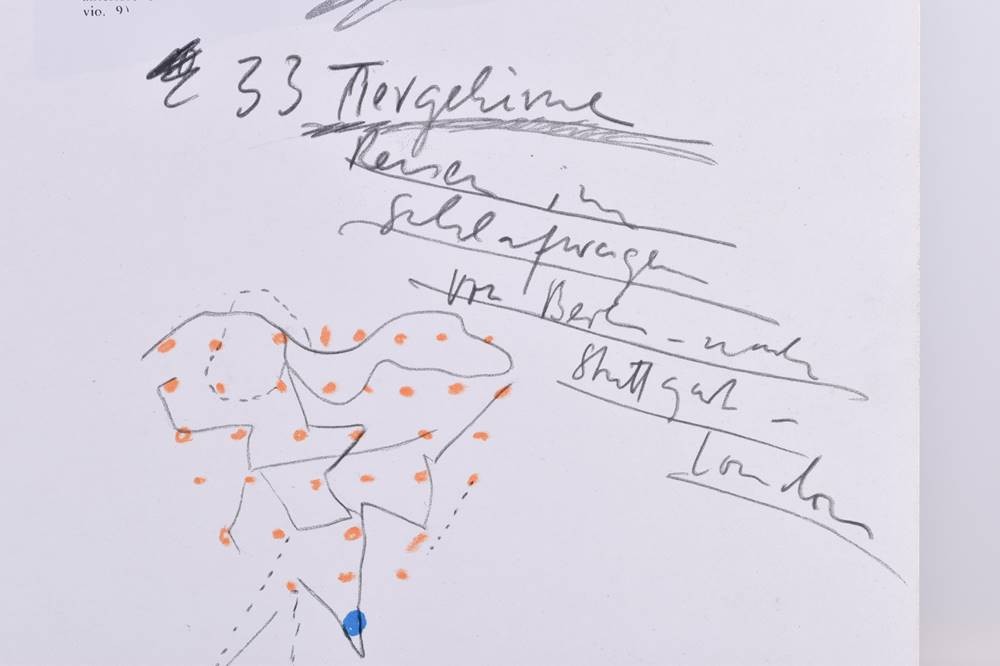 vio. 9)
33 Tiergehirne
Reisen im
Schlafwagen
von Berlin - nach
Stuttgart -
London